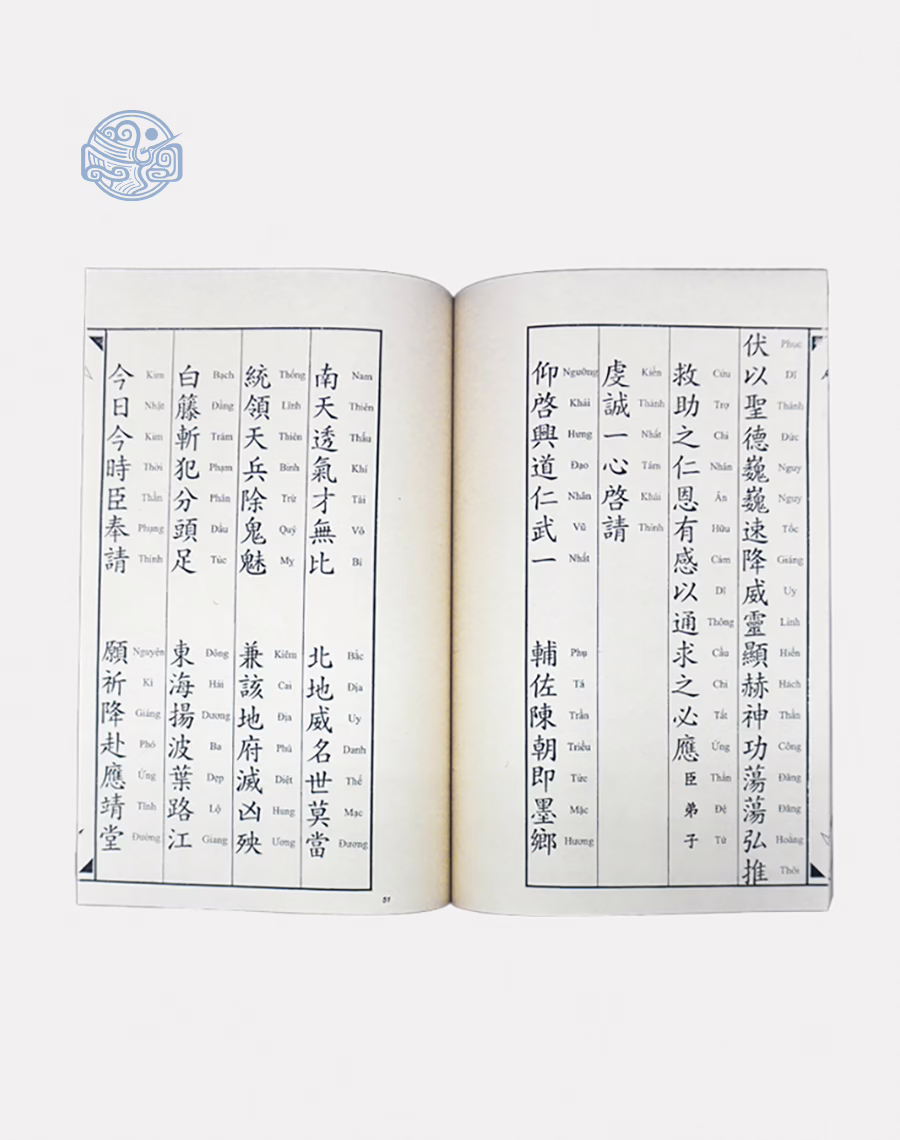 伏以聖德巍巍速降威靈顯赫神功蕩蕩弘推
Phục Dĩ Thánh Đức Nguy Nguy Tốc Giáng Uy Linh Hiển Hách Thần Công Đãng Đãng Hoằng Thôi
救助之仁恩有感以通求之必應臣弟子
Cứu Trợ Chi Nhân Ân Hữu Cảm Dĩ Thông Cầu Chi Tất Ứng Thần Đệ Tử
虔誠一心啓請
Kiền Thành Nhất Tâm Khải Thỉnh
仰啓興道仁武一 輔佐陳朝即墨鄉
Ngưỡng Khải Hưng Đạo Nhân Vũ Nhất Phụ Tá Trần Triều Tức Mặc Hương
南天透氣才無比 北地威名世莫當
Nam Thiên Thấu Khí Tài Vô Bỉ Bắc Địa Uy Danh Thế Mạc Đương
統領天兵除鬼魅 兼該地府滅凶殃
Thống Lĩnh Thiên Binh Trừ Quỷ Mỵ Kiêm Cai Địa Phủ Diệt Hung Ương
白籐斬犯分頭足 東海揚波葉路江
Bạch Đằng Trảm Phạm Phân Đầu Túc Đông Hải Dương Ba Dẹp Lộ Giang
今日今時臣奉請 願祈降赴應靖堂
Kim Nhật Kim Thời Thần Phụng Thỉnh Nguyện Kì Giáng Phó Ứng Tĩnh Đường
51